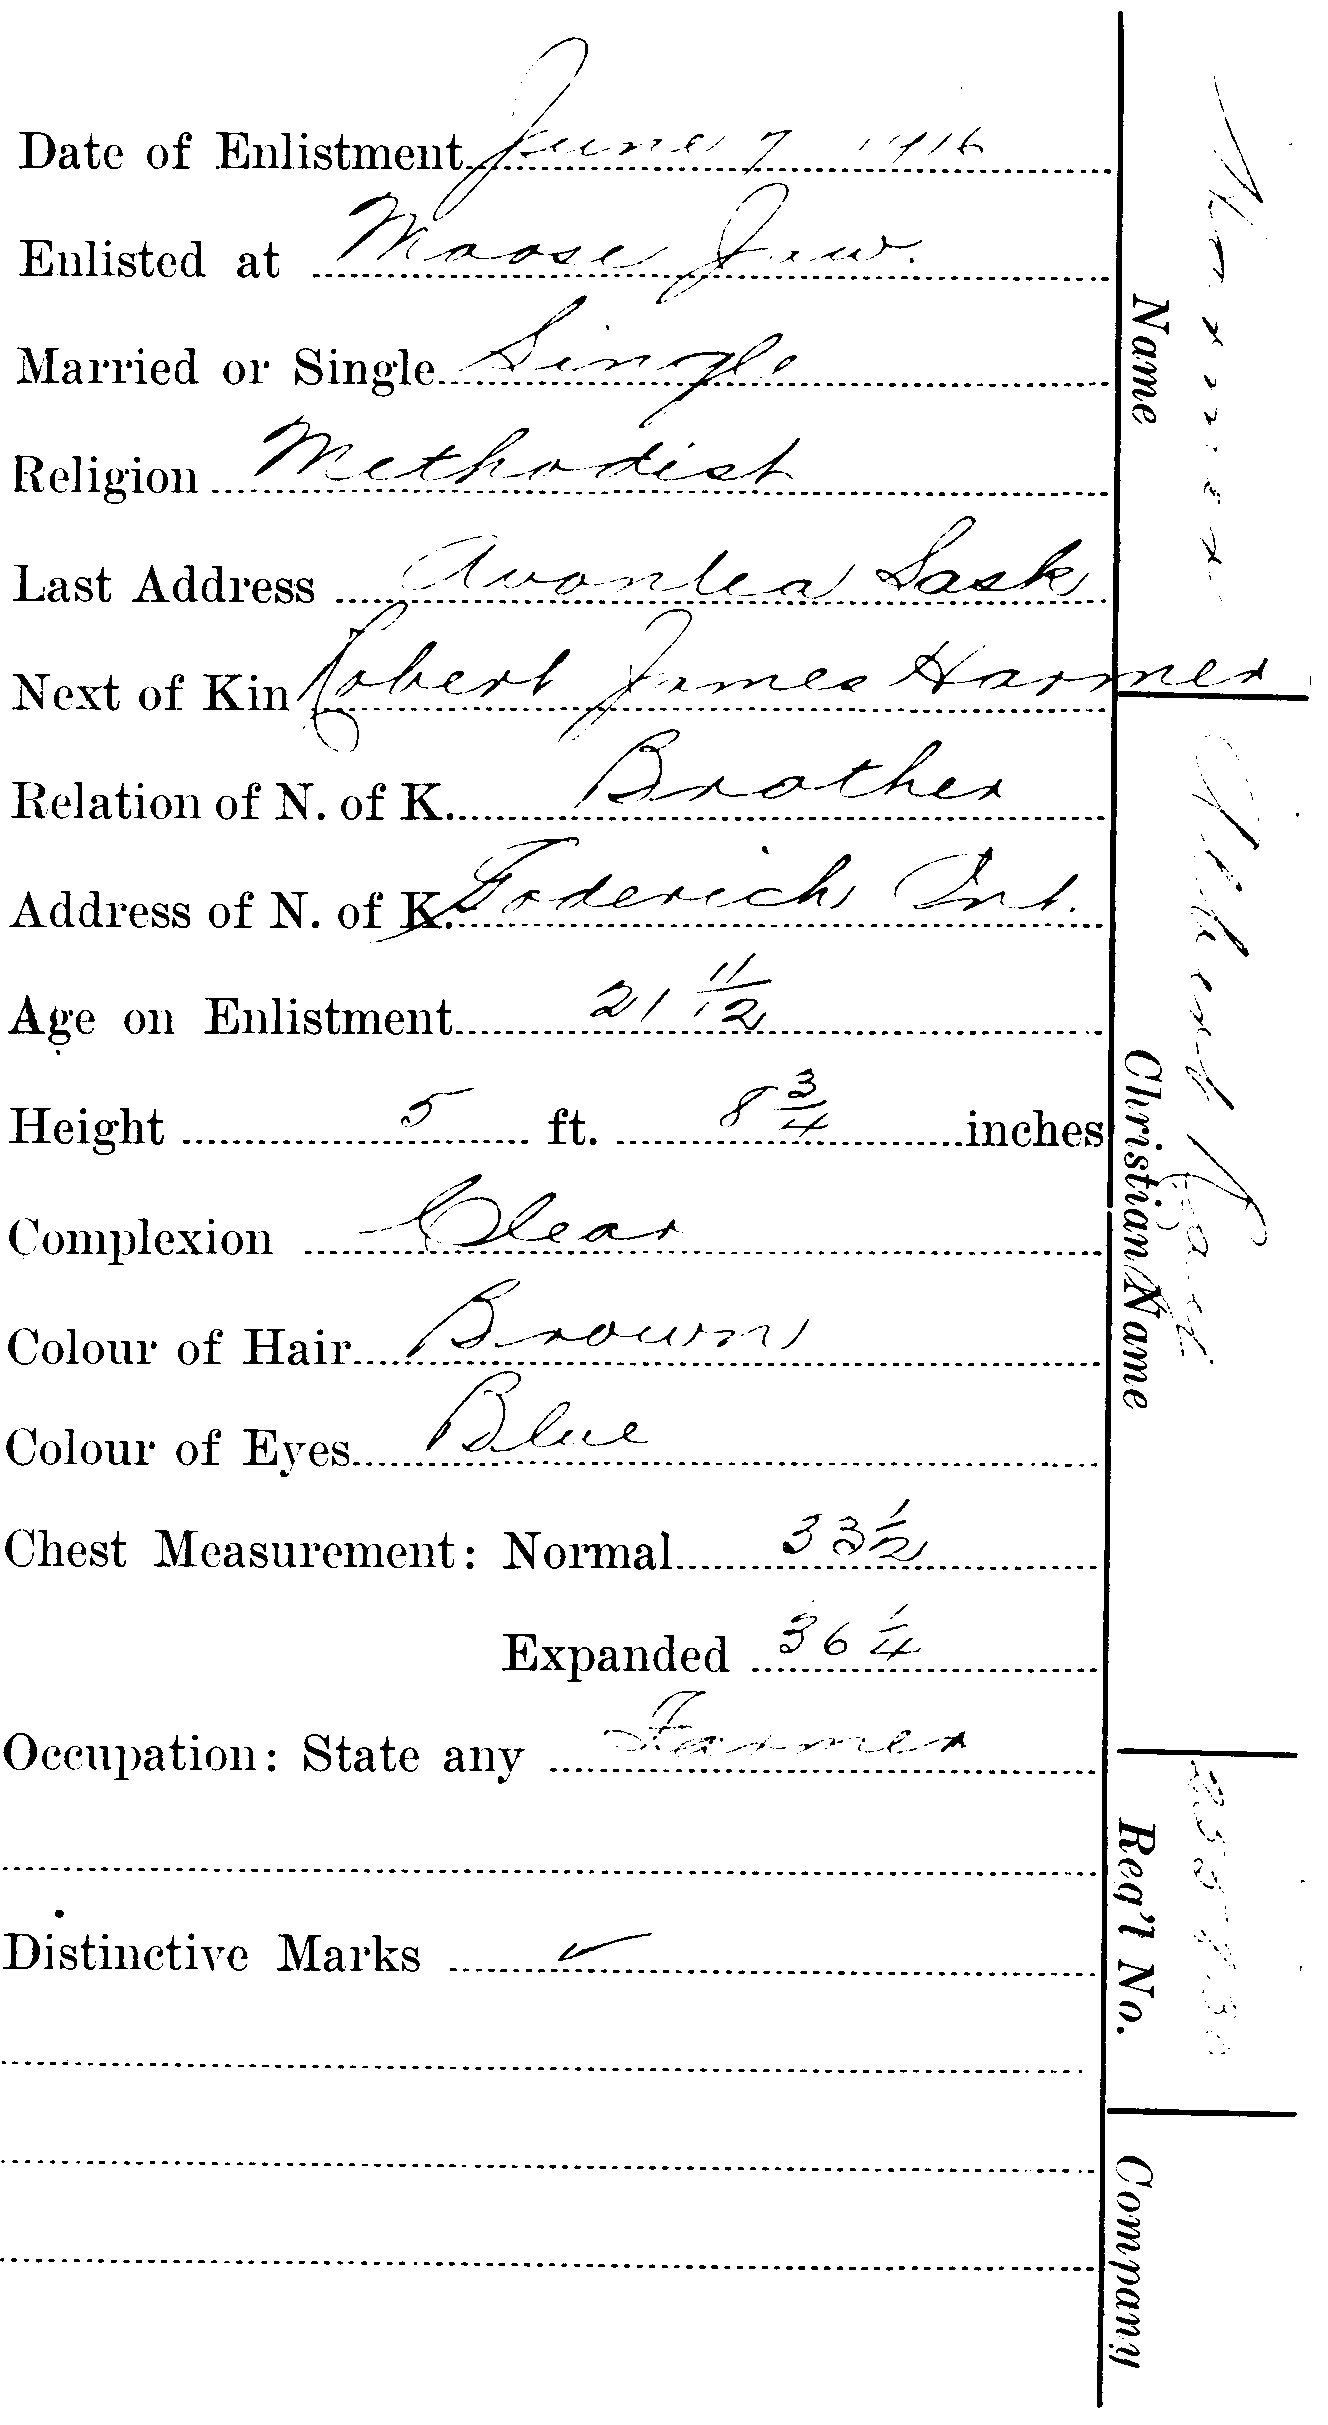 Date of Enlistment June 7 1916
Enlisted at Moose Jaw.
Married or Single Single
Religion Methodist
Last Address Avonlea Sask
Next of Kin Robert James Harmer
Relation of N. of K. Brother
Address of N. of K. Goderich Ont.
Age on Enlistment 21 11/12
Height 5 ft. 8 3/4 inches
Complexion Clear
Colour of Hair Brown
Colour of Eyes Blue
Chest Measurement: Normal 33 1/2
Expanded 36 1/4
Occupation: State any Farmer
Distinctive Marks ✓
Name
Christian Name
Reg'l No.
Company